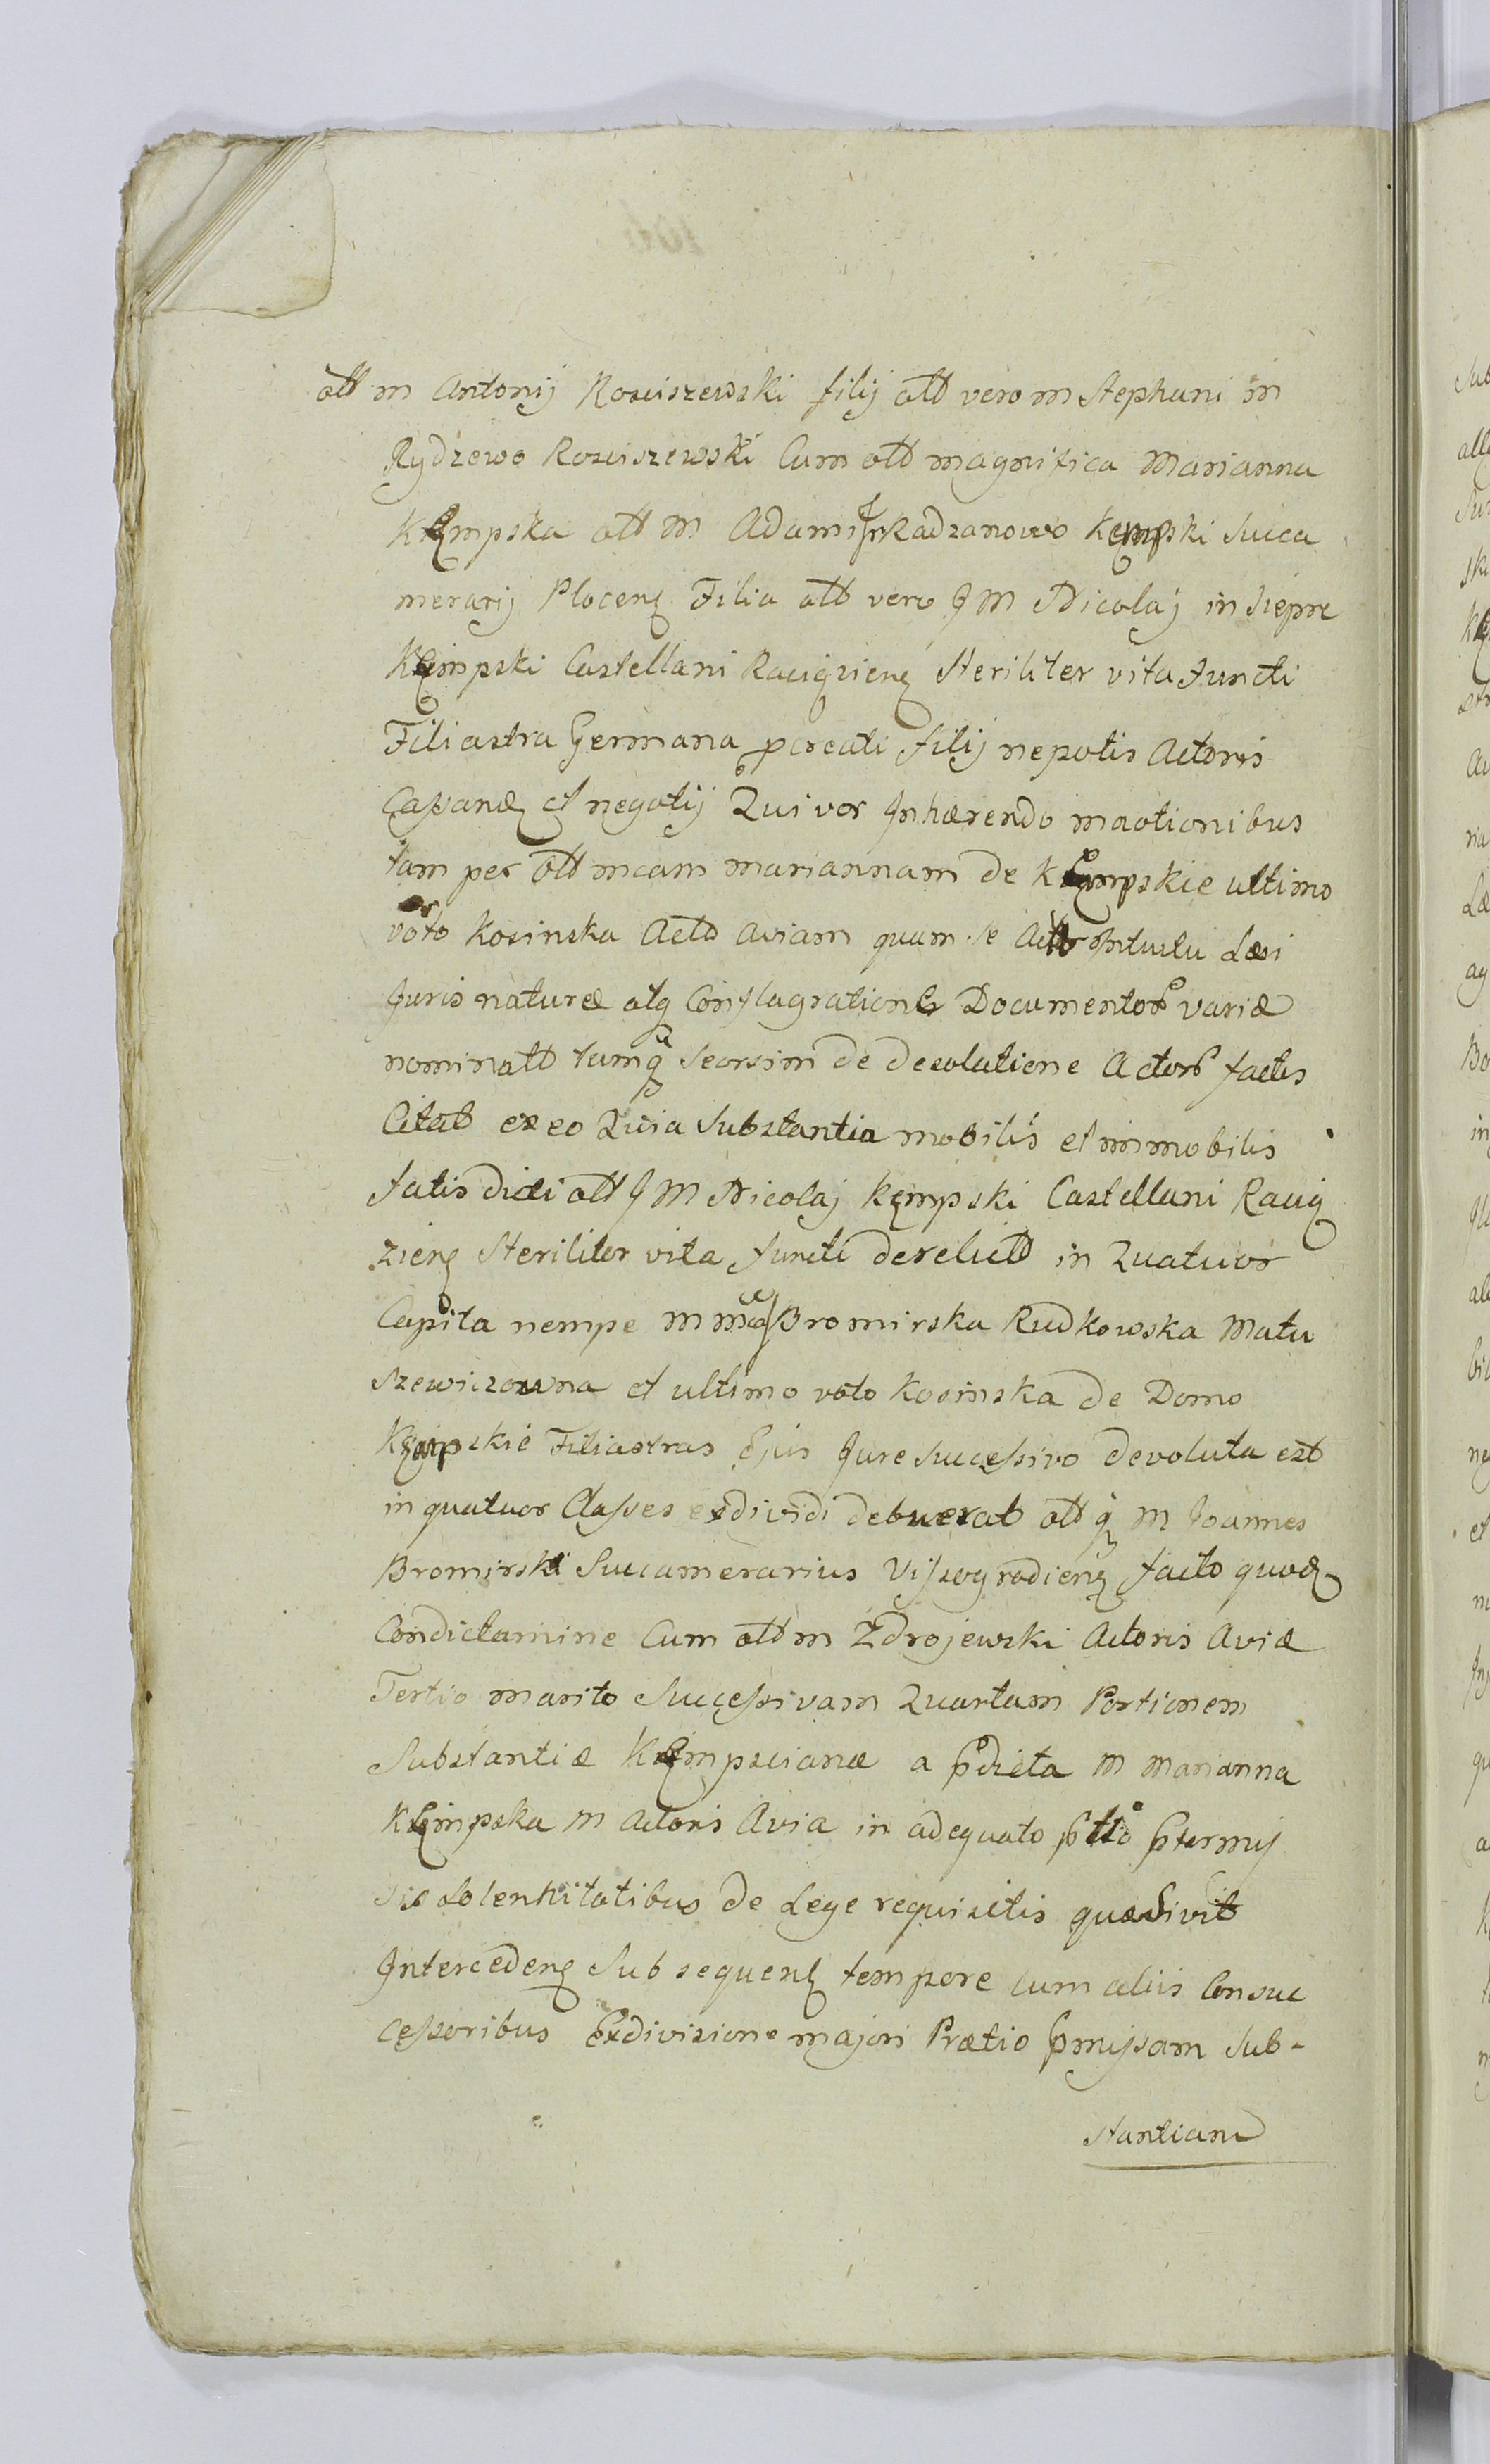 olt m Antonij Rosciszewski filij olt vero m Stephani in
Rydzewo Rosciszewski Cum olt magnifica Marianna
Kempska olt M Adami in Radzanowo Kempski Succa
merarij Plocenȩ Filia olt vero J M Nicolaj in Siepre
Kempski Castellani Raciązienȩ Steriliter vita functi
Filiastra Germana pcreati filij nepotis Actoris
Capanȩ et negotij Qui vos Inhærendo motionibus
tam per olt mcam mariannam de Kempskie ultimo
voto Kosinska Acto aviam quam se Læsi
Juris naturæ atq Conflagratione Documentor variæ
nominatt tamq seorsim de devolutione Actor factis
Citat ex eo Quia Substantia mobilis et immobilis
fatis dicti olt J M Nicolaj Kempski Castellani Raciąz
zienȩ Steriliter vita functi derelict in Quatuor
Capita nempe M Bromirska Rudkowska Matu
szewiczowna et ultimo voto Kosinska de Domo
Kempskie Filiastras Ejus Jure Successivo devoluta est
in quatuor Classes exdividi debuerat olt q M Joannes
Bromirski Succamerarius Vissogradienȩ facto quodȩ
Condictamine Cum olt m Zdrojewski Actoris Aviæ
Tertio marito Successivam Quartam Portionem
Substantiæ Kempscianæ a pdicta M Marianna
Kempska M Actoris Avia in adequato ptio ptermis
sis Solennitatibus de Lege requisitis quæsivit
Intercedenȩ Sub sequenȩ tempore cum aliis Consuc
cessoribus Exdivisione majori Prætio pmissam Sub-
stantiam